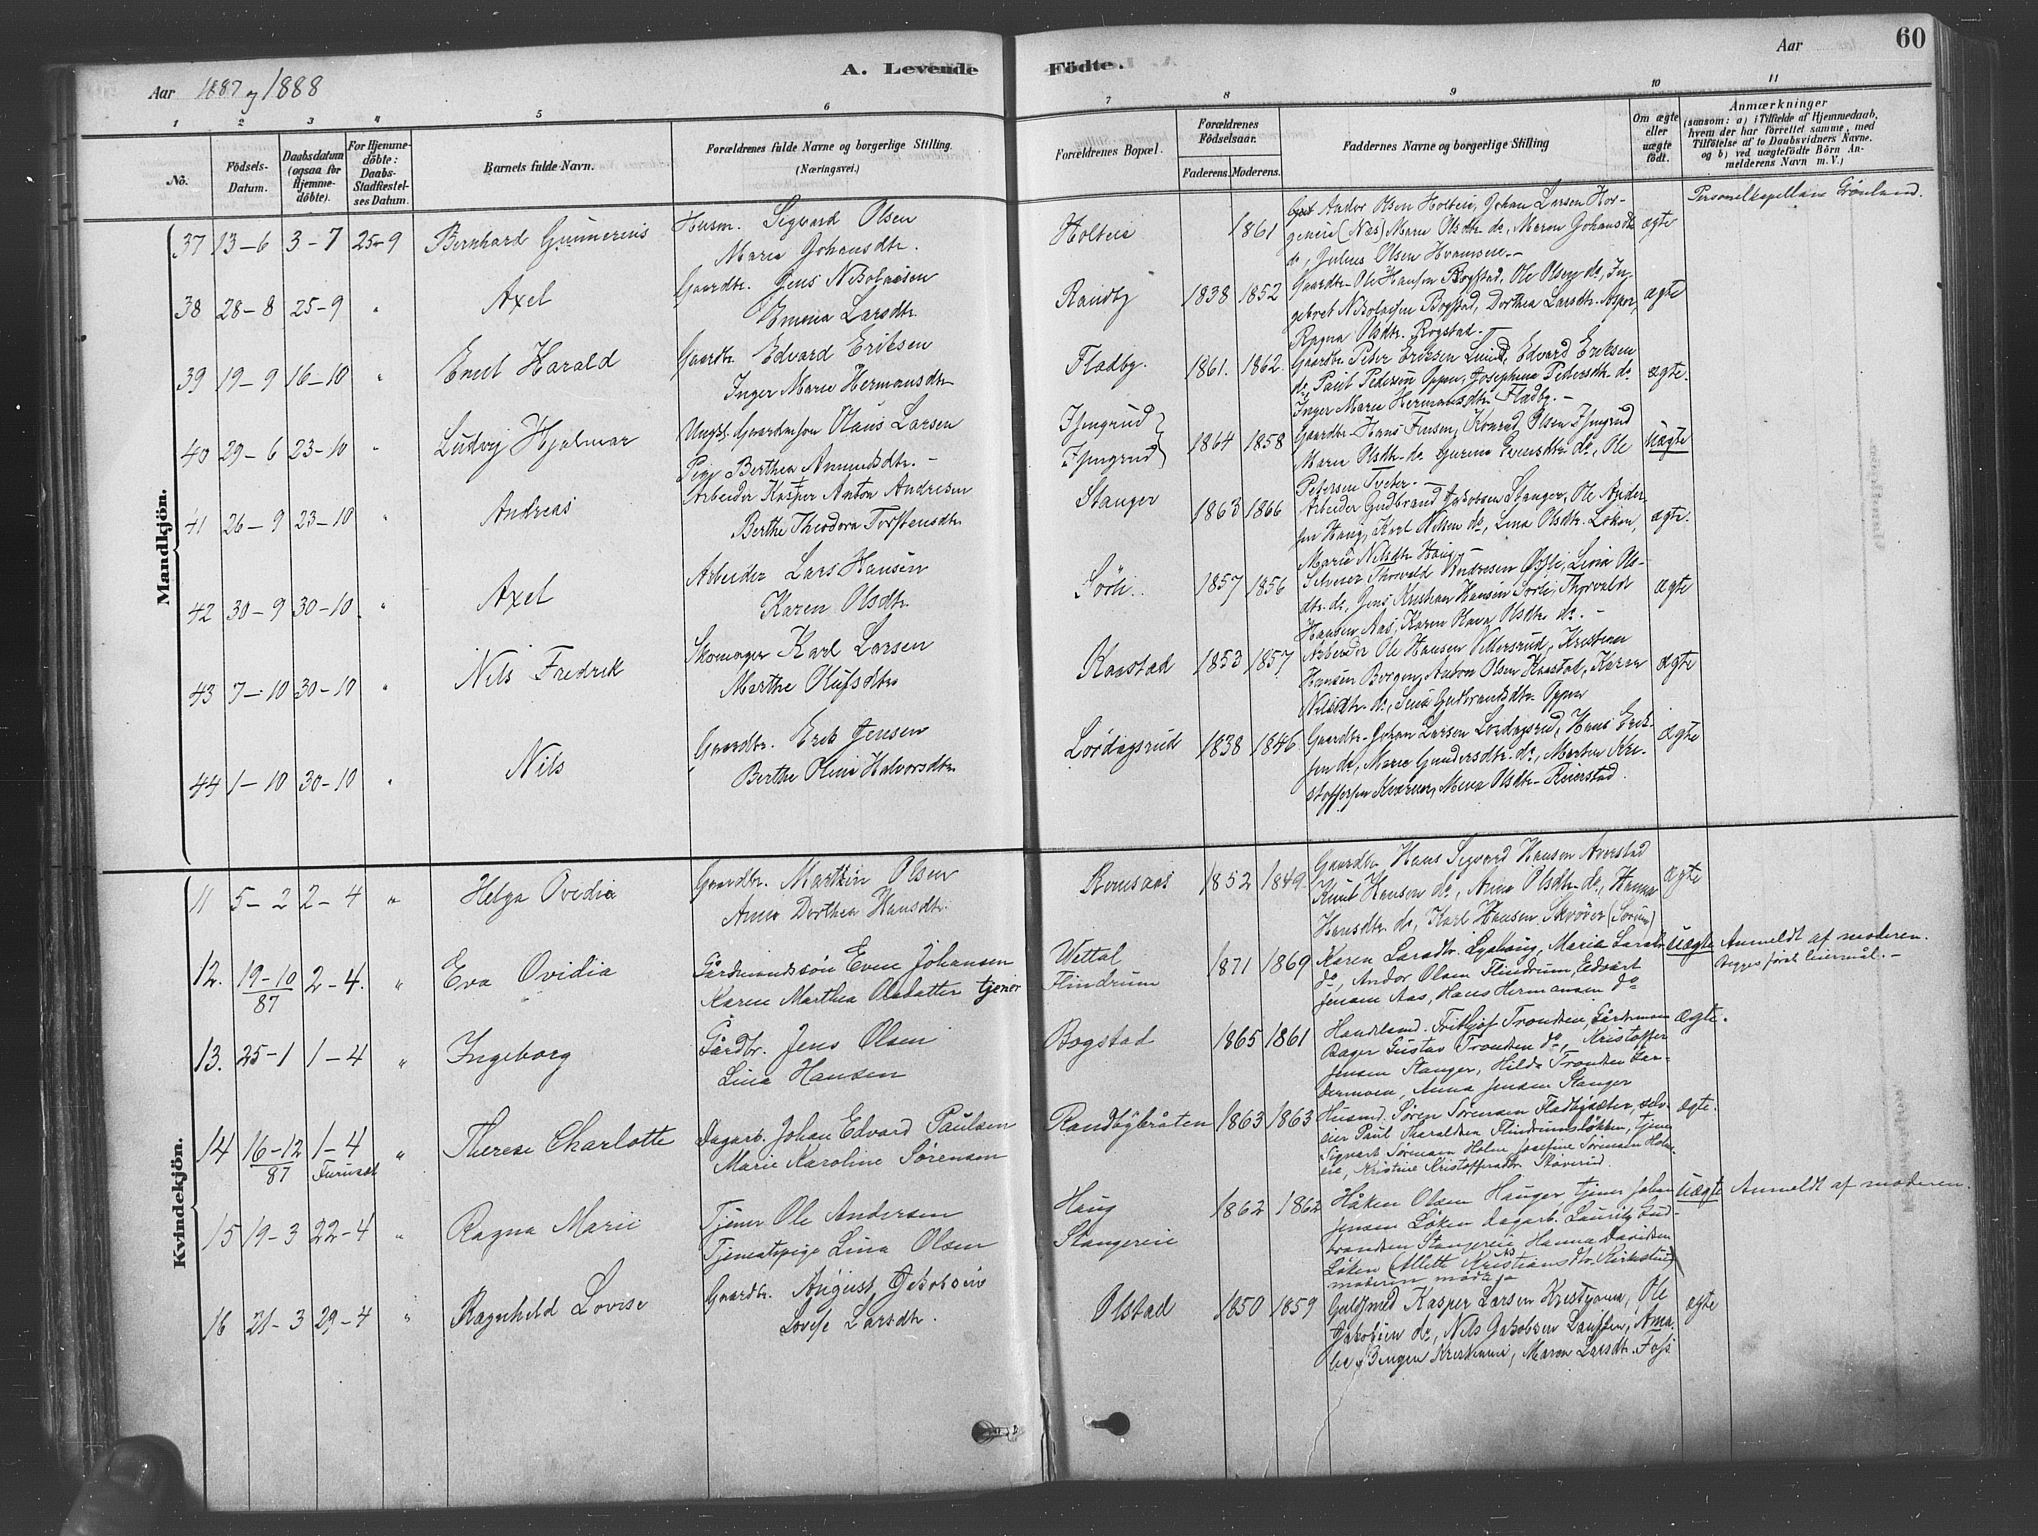 60
A. Levende Födte.
Aar 1887 og 1888
Aar
1 2 3 4 5 6 7 8 9 10 11
No.
Födsels-Datum.
Daabsdatum (ogsaa for Hjemmedöbte).
For Hjemmedöbte: Daabs-Stadfæstelses Datum.
Barnets fulde Navn.
Forældrenes fulde Navne og borgerlige Stilling. (Næringsvei.)
Forældrenes Bopæl.
Forældrenes Födselsaar.
Faderens. Moderens.
Faddernes Navne og borgerlige Stilling
Om ægte eller uægte födt.
Anmærkninger
(saasom: a) i Tilfælde af Hjemmedaab, hvem der har forrettet samme, med Tilföielse af to Daabsvidners Navne. og b) ved uægtefödte Börn Anmelderens Navn m. V.)
Mandkjön.
37 13-6 3-7 25-9 Bernhard Gunnerius
Husm. Sigvard Olsen
Maria Johansdtr.
Holteia 1861
Andor Olsen Holteie, Johan Larsen Hor-
geneia (Næs) Maren Olsdtr. do, Maren Johansdtr
do, Julius Olsen
ægte
Personelkapellan Grönland.
38 28-8 25-9 " Axel
Gaardbr. Jens Nikolaisen
Emma Larsdtr.
Randby 1838 1852
Gaardbr. Ole Hansen Bogstad, Ole Olsen do, In-
geboret Nikolaisen Bogstad, Dorthea Larsdtr. Asper,
Ragna Olsdtr. Bogstad.-
ægte
39 19-9 16-10 " Emil Harald
Gaardbr. Edvard Eriksen
Inger Marie Hermansdtr
Fladby. 1861. 1862.
Gaardbr. Peder Eriksen Lund, Edvard Eriksen
do, Paul Pedersen Oppen, Josephine Pedersdtr. do.
Inger Marie Hermansdtr. Fladby.-
ægte.
40 29-6 23-10 " Ludvig Hjalmar
Ungk. Gaardmsøn Olaus Larsen
Pige Berthea Amundsdtr.-
1864 1858
Gaardbr. Hans Jensen, Konrad Olsen
Maren Olsdtr. do Gurine Evensdtr. do, Ole
Petersen Tveter.-
Uægte
41 26-9 23-10 " Andreas
Arbeider Kasper Anton Andresen
Berthe Theodora Torstensdtr
Stanger 1863 1866
Arbeider Gudbrand Jakobsen Stanger, Ole Ander-
sen Haug, Karl Nilsen do, Lina Olsdtr. Løken,
Marie Nilsdtr. Haug.-
ægte.
42 30-9 30-10 " Axel
Arbeider Lars Hansen
Karen Olsdtr.
Sörli. 1857 1856
Selveier Thorvald Andresen Lina Ols-
dtr. do, Jens Kristian Hansen Sörli, Thorvald
Hansen Aas, Karen Olava Olsdtr. do.-
ægte
43 7-10 30-10 " Nils Fredrik
Skomager Karl Larsen
Marthe Olufsdtr
Kaastad 1853 1857
Arbeider Ole Hansen Kristian
Hansen Borgen, Anton Olsen Kaastad, Karen
Nilsdtr. do, Lina Gudbrandsdtr. Oppen
ægte
44 1-10 30-10 " Nils
Gaardbr. Erik Jensen
Berthe Olina Halvorsdtr.
Lördagsrud 1838 1846
Gaardbr. Johan Larsen Lördagsrud, Hans Erik-
sen do, Marie Gundersdtr. do, Martin Kri-
stoffersen Kværner, Mina Olsdtr. Reierstad.
ægte
Kvindekjön.
11 5-2 2-4 " Helga Ovidia
Gaardbr. Marthin Olsen
Anne Dorthea Hansdtr.
Romsaas 1852 1849
Gaardbr. Hans Sigvard Hansen Averstad
Knut Hansen do, Anna Olsdtr. do, Hanna
Hansdtr. do, Karl Hansen (Sörum)
ægte
12. 19-10/87 2-4. " Eva Ovidia
Gårdmandssön Even Johansen
Karen Marthea Olsdatter tjener
Wettal
Flindrum
1871 1869
Karen Larsdtr. Lysaug, Maria Larsdtr
do, Andor Olsen Flindrum, Edvart
Jensen Aas, Hans Hermansen do
Uægte
Anmeldt af moderen.
Begges förste leiermål.-
13. 25-1 1-4 " Ingeborg
Gårdbr. Jens Olsen
Lina Hansen
Bogstad 1865 1861
Handlsmd. Frithjof Trondsen, Gårdmand
Bager Gustav Trondsen do, Kristoffer
Jensen Stanger, Hilda Trondsen Ler-
dermoen, Anna Jensen Stanger
ægte.
14 16-12/87 1-4 Furuset " Therese Charlotte
Dagarb. Johan Edvard Paulsen
Marie Karoline Sörensen
Randbybråten 1863 1863
Husmd. Sören Sörensen Fladbysæter, selv-
eier Paul Tharaldsen Flindrumsløkken, tjener
Sigvart Sörensen Holm Josefine Sörensen Holm-
eie, Kristine Kristoffersdtr. Støverud.
ægte.
15 19-3 22-4 " Ragna Marie
Tjener Ole Andersen
Tjenestepige Lina Olsen
Haug
Stangereie
1862 1862
Håken Olsen Hauger, tjener Johan
Jensen Løken dagarb. Lauritz Gud-
brandsen Stangereie Hanna Davidsen
Løken (Alette Kristiansdtr. Kirkelund)
moderen
Uægte
Anmeldt af moderen.
16 21-3 29-4 " Ragnhild Lovise
Gaardbr. August Jakobsen
Lovise Larsdtr.
Olstad 1850 1859
Guldsmed Kasper Larsen Kristiania, Ole
Jakobsen do, Nils Jakobsen Ama-
lie Bingen Kristiania, Maren Larsdtr. Foss
ægte